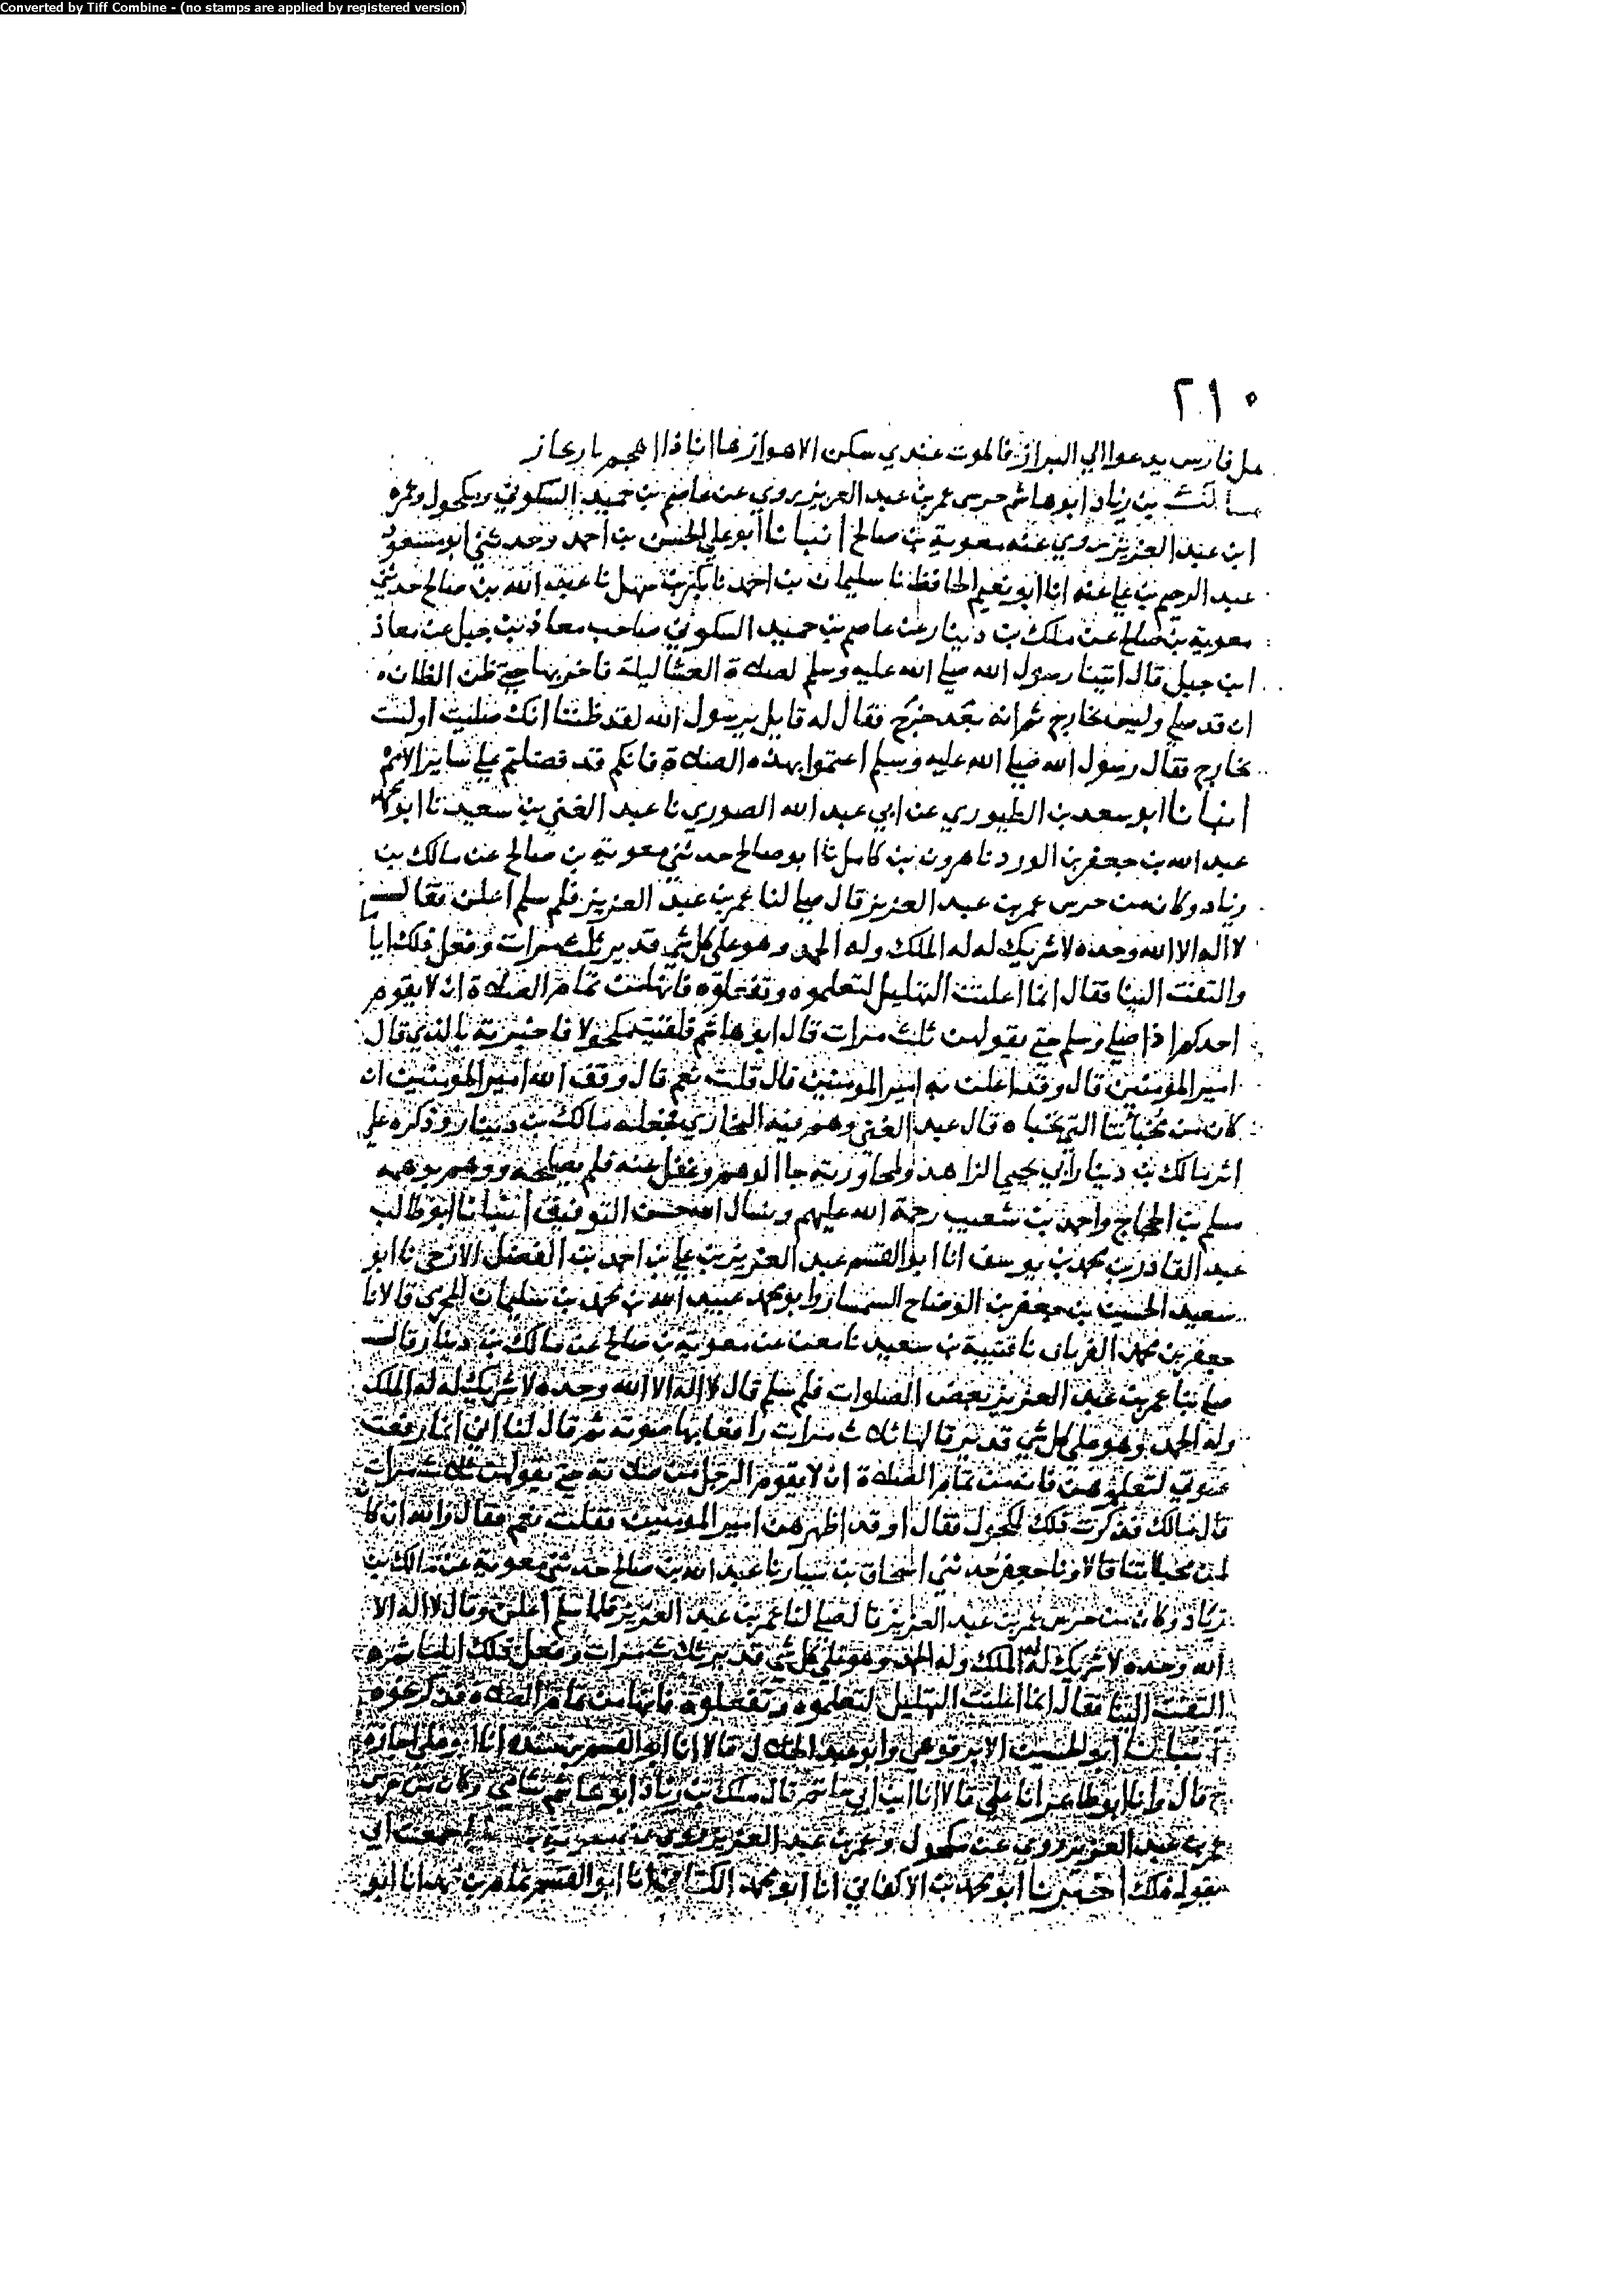 Converted by Tiff Combine - (no stamps are applied by registered version)
٢١٠
هل فارس يدعوا الي البراز فالموت عندي سكن الاهواز ها انا ذا اهجم بارتجاز
مالك بن زياد ابو هاشم حرسي عمر بن عبد العزيز روي عن عاصم بن حميد السكوني ومكحول وعمر
ابن عبد العزيز روي عنه معوية بن صالح انبانا ابو علي الحسن بن احمد وحدثني ابو مسعود
عبد الرحيم بن علي عنه انا ابو نعيم الحافظ نا سليمان بن احمد نا بكر بن سهل نا عبد الله بن صالح حدثني
معوية بن صالح عن ملك بن دينار عن عاصم بن حميد السكوني صاحب معاذ بن جبل عن معاذ
ابن جبل قال اتينا رسول الله صلي الله عليه وسلم لصلاة العشا ليلة فاخر بها حتي ظن الظان
ان قد صلي وليس بخارج ثم انه بعد خرج فقال له قايل يرسول الله لقد ظننا انك صليت اولست
بخارج فقال رسول الله صلي الله عليه وسلم اعتموا بهذه الصلاة فانكم قد فضلتم علي ساير الامم
انبانا ابو سعد بن الطيوري عن ابي عبد الله الصوري نا عبد الغني بن سعيد نا ابو محمد
عبد الله بن جعفر بن الورد نا هرون بن كامل نا ابو صالح حدثني معوية بن صالح عن مالك بن
زياد وكان من حرس عمر بن عبد العزيز قال صلي لنا عمر بن عبد العزيز فلم سلم اعلن فقال
لا اله الا الله وحده لا شريك له له الملك وله الحمد وهو علي كل شي قدير ثلث مرات وفعل ذلك اياما
والتفت الينا فقال انما اعلنت التهليل لتعلموه وتفعلوه فانها من تمام الصلاة ان لا يقوم
احدكم اذا صلي وسلم حتي يقولهن ثلث مرات قال ابو هاشم فلقيت مكحولا فاخبرته بالذي قال
امير المؤمنين قال وقد اعلن به امير المومنين قال قلت نعم قال وفق الله امير المومنين ان
كان من مخبأتنا التي نخباه قال عبد الغني وهم فيه البخاري فجعله مالك بن دينار وذكره علي
اثر مالك بن دينار ابي يحيي الزاهد ولمجاورته جا الوهم وغفل عنه فلم يصلحه ووهم بوهمه
مسلم بن الحجاج واحمد بن شعيب رحمة الله عليهم ونسال الله حسن التوفيق انبانا ابو طالب
عبد القادر بن محمد بن يوسف انا ابو القسم عبد العزيز بن علي بن احمد بن الفضل الازجي نا ابو
سعيد الحسين بن جعفر بن الوضاح السمسار وابو محمد عبيد الله بن محمد بن سليمان المخرمي قالا نا
جعفر بن محمد الفريابي نا قتيبة بن سعيد نا معن عن معوية بن صالح عن مالك بن دينار قال
صلي بنا عمر بن عبد العزيز بعض الصلوات فلم سلم قال لا اله الا الله وحده لا شريك له له الملك
وله الحمد وهو علي كل شي قدير قالها ثلاث مرات رافعا بها صوته ثم قال لنا اني انما رفعت
صوتي لتعلموهن فانه من تمام الصلاة ان لا يقوم الرجل من صلاته حتي يقولهن ثلاث مرات
قال مالك فذكرت ذلك لمكحول فقال اوقد اظهرهن امير المومنين فقلت نعم فقال والله ان كان
لمن مخباتنا قالا ونا جعفر حدثني اسحاق بن سيار نا عبد الله بن صالح حدثني معوية عن مالك بن
زياد وكان من حرس عمر بن عبد العزيز قال صلي لنا عمر بن عبد العزيز فلما سلم اعلن وقال لا اله الا
الله وحده لا شريك له له الملك وله الحمد وهو علي كل شي قدير ثلاث مرات وفعل ذلك
التفت الينا فقال انما اعلنت التهليل لتعلموه وتفعلوه فانها من تمام الصلاة فذكر نحوه
انبانا ابو الحسين الابرقوهي وابو عبد الخلال قالا انا ابو القسم بن منده انا ابو علي اجازة
ح قال وانا ابو طاهر انا علي قالا انا ابن ابي حاتم قال ملك بن زياد ابو هاشم شامي وكان من حرس
عمر بن عبد العزيز روي عن مكحول وعمر بن عبد العزيز روي عنه معوية بن صالح سمعت ابي
يقول ذلك اخبرنا ابو محمد بن الاكفاني انا ابو محمد الكتاني انا ابو القسم تمام بن محمد انا ابو